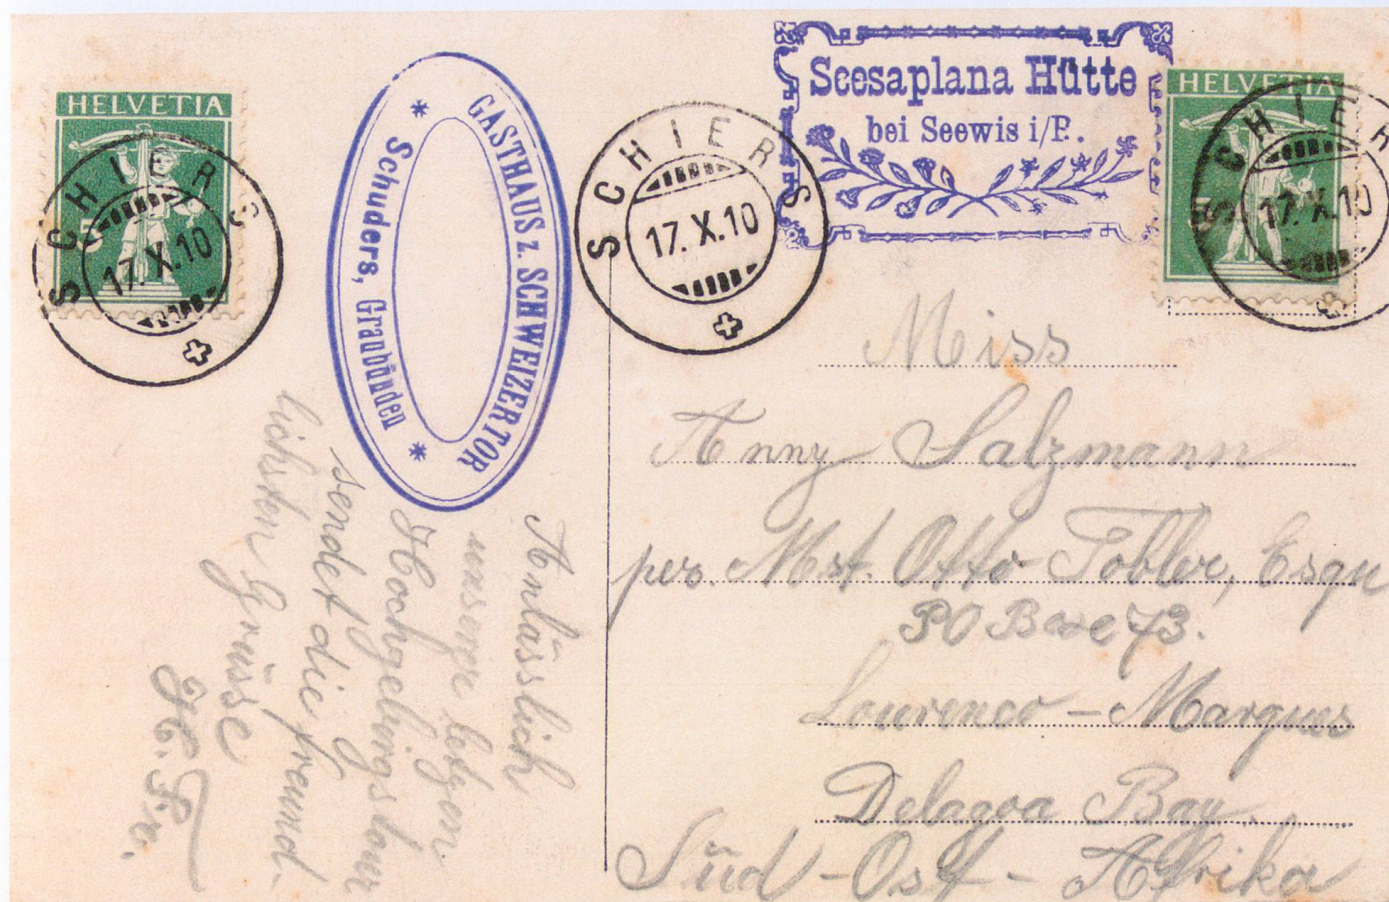 HELVETIA
5
SCHIERS
17.X.10
GASTHAUS z. SCHWEIZERTOR
* Schuders, Graubünden *
SCHIERS
17.X.10
Scesaplana Hütte
bei Seewis i/P.
HELVETIA
SCHIERS
17.X.10
Anlässlich
unserer letzten
Hochgebirgstour
sendet die freund-
lichsten Grüsse
Miss
Anny Salzmann
per. Mst. Otto Tobler, Esqu
PO Boxe 73.
Lourenco - Marques
Delagoa Bay.
Süd - Ost - Afrika